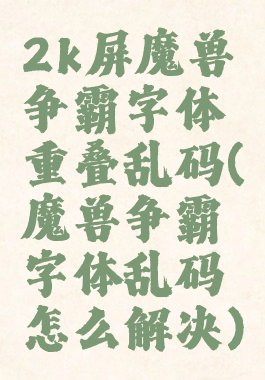 2k屏魔兽
争霸字体
重叠乱码(
魔兽争霸
字体乱码
怎么解决)